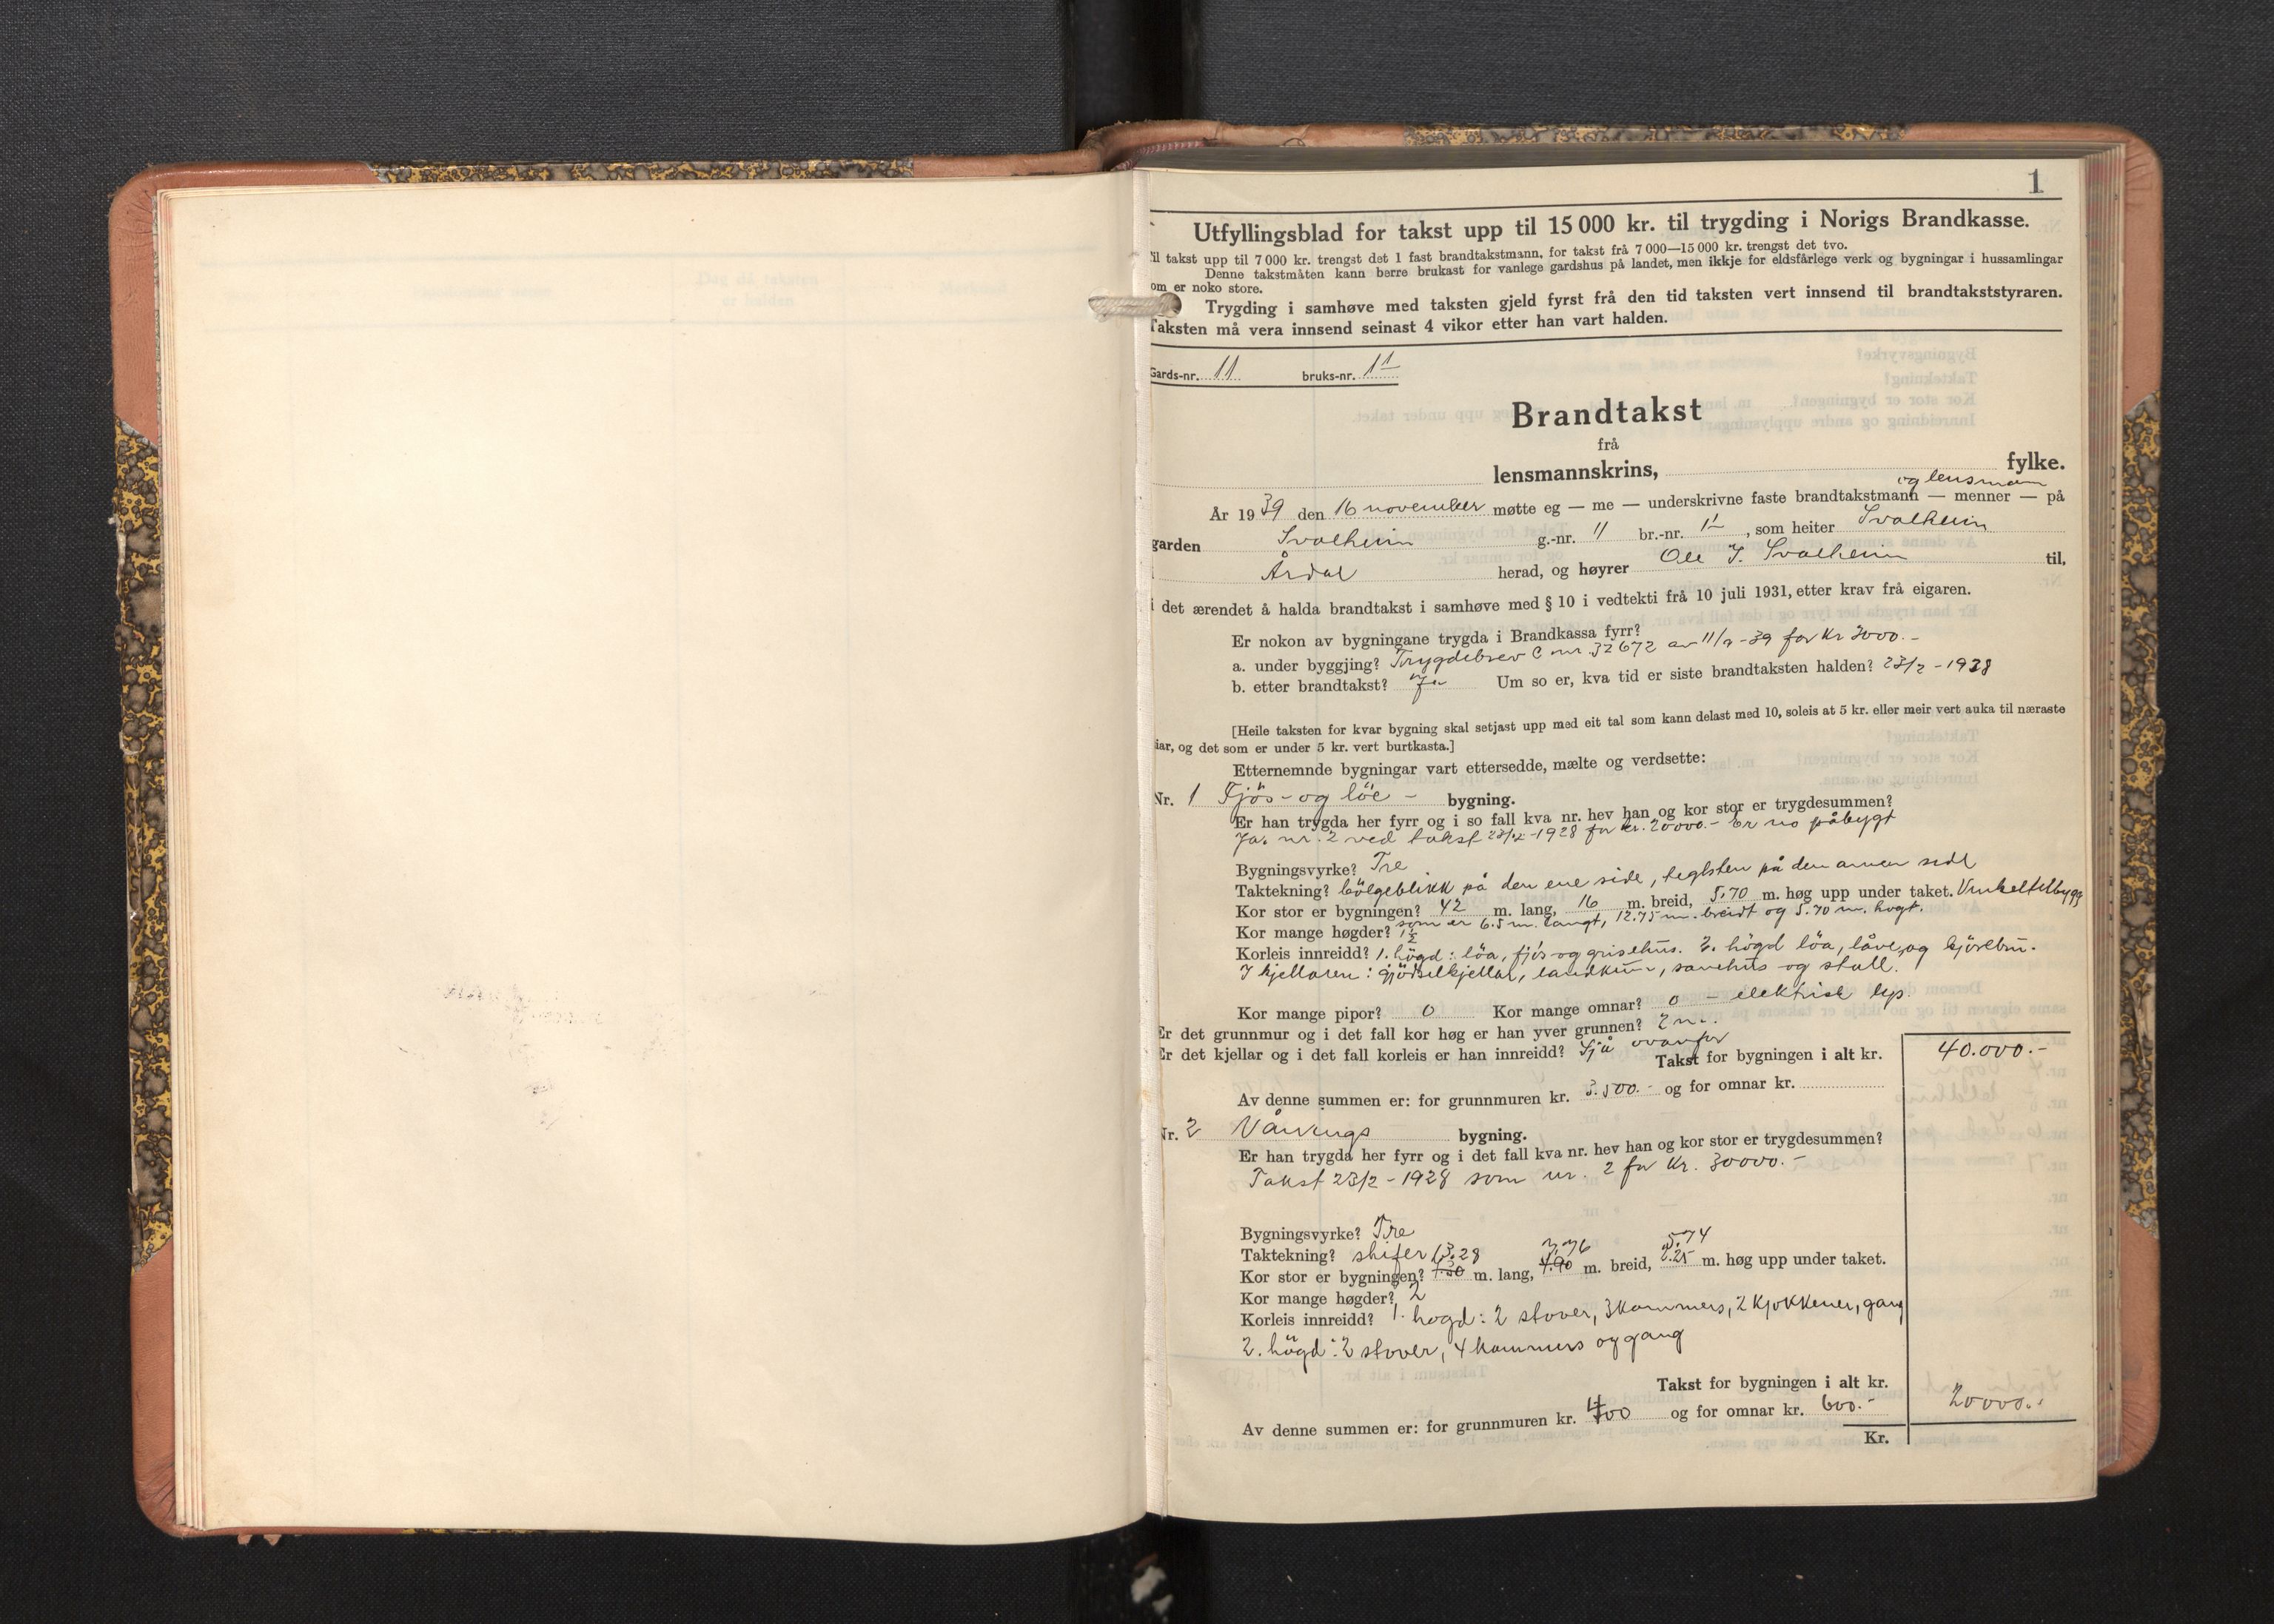 1
Utfyllingsblad for takst upp til 15 000 kr. til trygding i Norigs Brandkasse.
il takst upp til 7 000 kr. trengst det 1 fast brandtakstmann, for takst frå 7 000—15 000 kr. trengst det tvo.
Denne takstmåten kann berre brukast for vanlege gardshus på landet, men ikkje for eldsfårlege verk og bygningar i hussamlingar
om er noko store.
Trygding i samhøve med taksten gjeld fyrst frå den tid taksten vert innsend til brandtakststyraren.
Taksten må vera innsend seinast 4 vikor etter han vart halden.
Gards-nr. 11 bruks-nr. 11
Brandtakst
frå
lensmannskrins, fylke.
og lensmann
År 1939 den 16 november møtte eg — me — underskrivne faste brandtakstmann — menner — på
garden Svalheim g.-nr. 11 br.-nr. 11, som heiter Svalheim
Årdal herad, og høyrer Ole J. Svalheim til,
i det ærendet å halda brandtakst i samhøve med § 10 i vedtekti frå 10 juli 1931, etter krav frå eigaren.
Er nokon av bygningane trygda i Brandkassa fyrr?
a. under byggjing? Trygdebrev C nr. 32672 av 11/9-39 for kr 3000.-
b. etter brandtakst? Ja Um so er, kva tid er siste brandtaksten halden? 23/2-1928
[Heile taksten for kvar bygning skal setjast upp med eit tal som kann delast med 10, soleis at 5 kr. eller meir vert auka til næraste
iar, og det som er under 5 kr. vert burtkasta.]
Etternemnde bygningar vart ettersedde, mælte og verdsette:
Nr. 1 Fjös- og löe- bygning.
Er han trygda her fyrr og i so fall kva nr. hev han og kor stor er trygdesummen?
Ja. nr. 2 ved takst 23/2-1928 for kr. 20000.- Er no påbygt
Bygningsvyrke? Tre
Taktekning? bölgeblikk på den ene side, teglsten på den annen side
Kor stor er bygningen? 42 m. lang, 16 m. breid, 5.70 m. høg upp under taket. Vinkeltilbygg
som er 6.5 m. langt, 12.75 m. breidt og 5.70 m. hogt.
Kor mange høgder? 1½
Korleis innreidd? 1. högd: löa, fjös og grisehus. 2. högd löa, låve og kjörebru.
I kjellaren: gjödselkjellar, landkum, sauehus og stall.
Kor mange pipor? 0 Kor mange omnar? 0 - elektrisk lys.
Er det grunnmur og i det fall kor høg er han yver grunnen? 2 m.
Er det kjellar og i det fall korleis er han innreidd? Sjå ovanfor
Takst for bygningen i alt kr. 40.000.-
Av denne summen er: for grunnmuren kr. 3.500.- og for omnar kr.
Nr. 2 Vånings bygning.
Er han trygda her fyrr og i det fall kva nr. hev han og kor stor er trygdesummen?
Takst 23/2-1928 som nr. 2 for kr. 30000.-
Bygningsvyrke? Tre
Taktekning? skifer
13.28 5.74
Kor stor er bygningen? m. lang, m. breid, m. høg upp under taket.
Kor mange høgder? 2
Korleis innreidd? 1. hogd: 2 stover, 3 kammers, 2 kjøkkener, gang
2. högd: 2 stover, 4 kammers og gang
Takst for bygningen i alt kr. 20000.-
Av denne summen er: for grunnmuren kr. 400 og for omnar kr. 600.-
Kr.